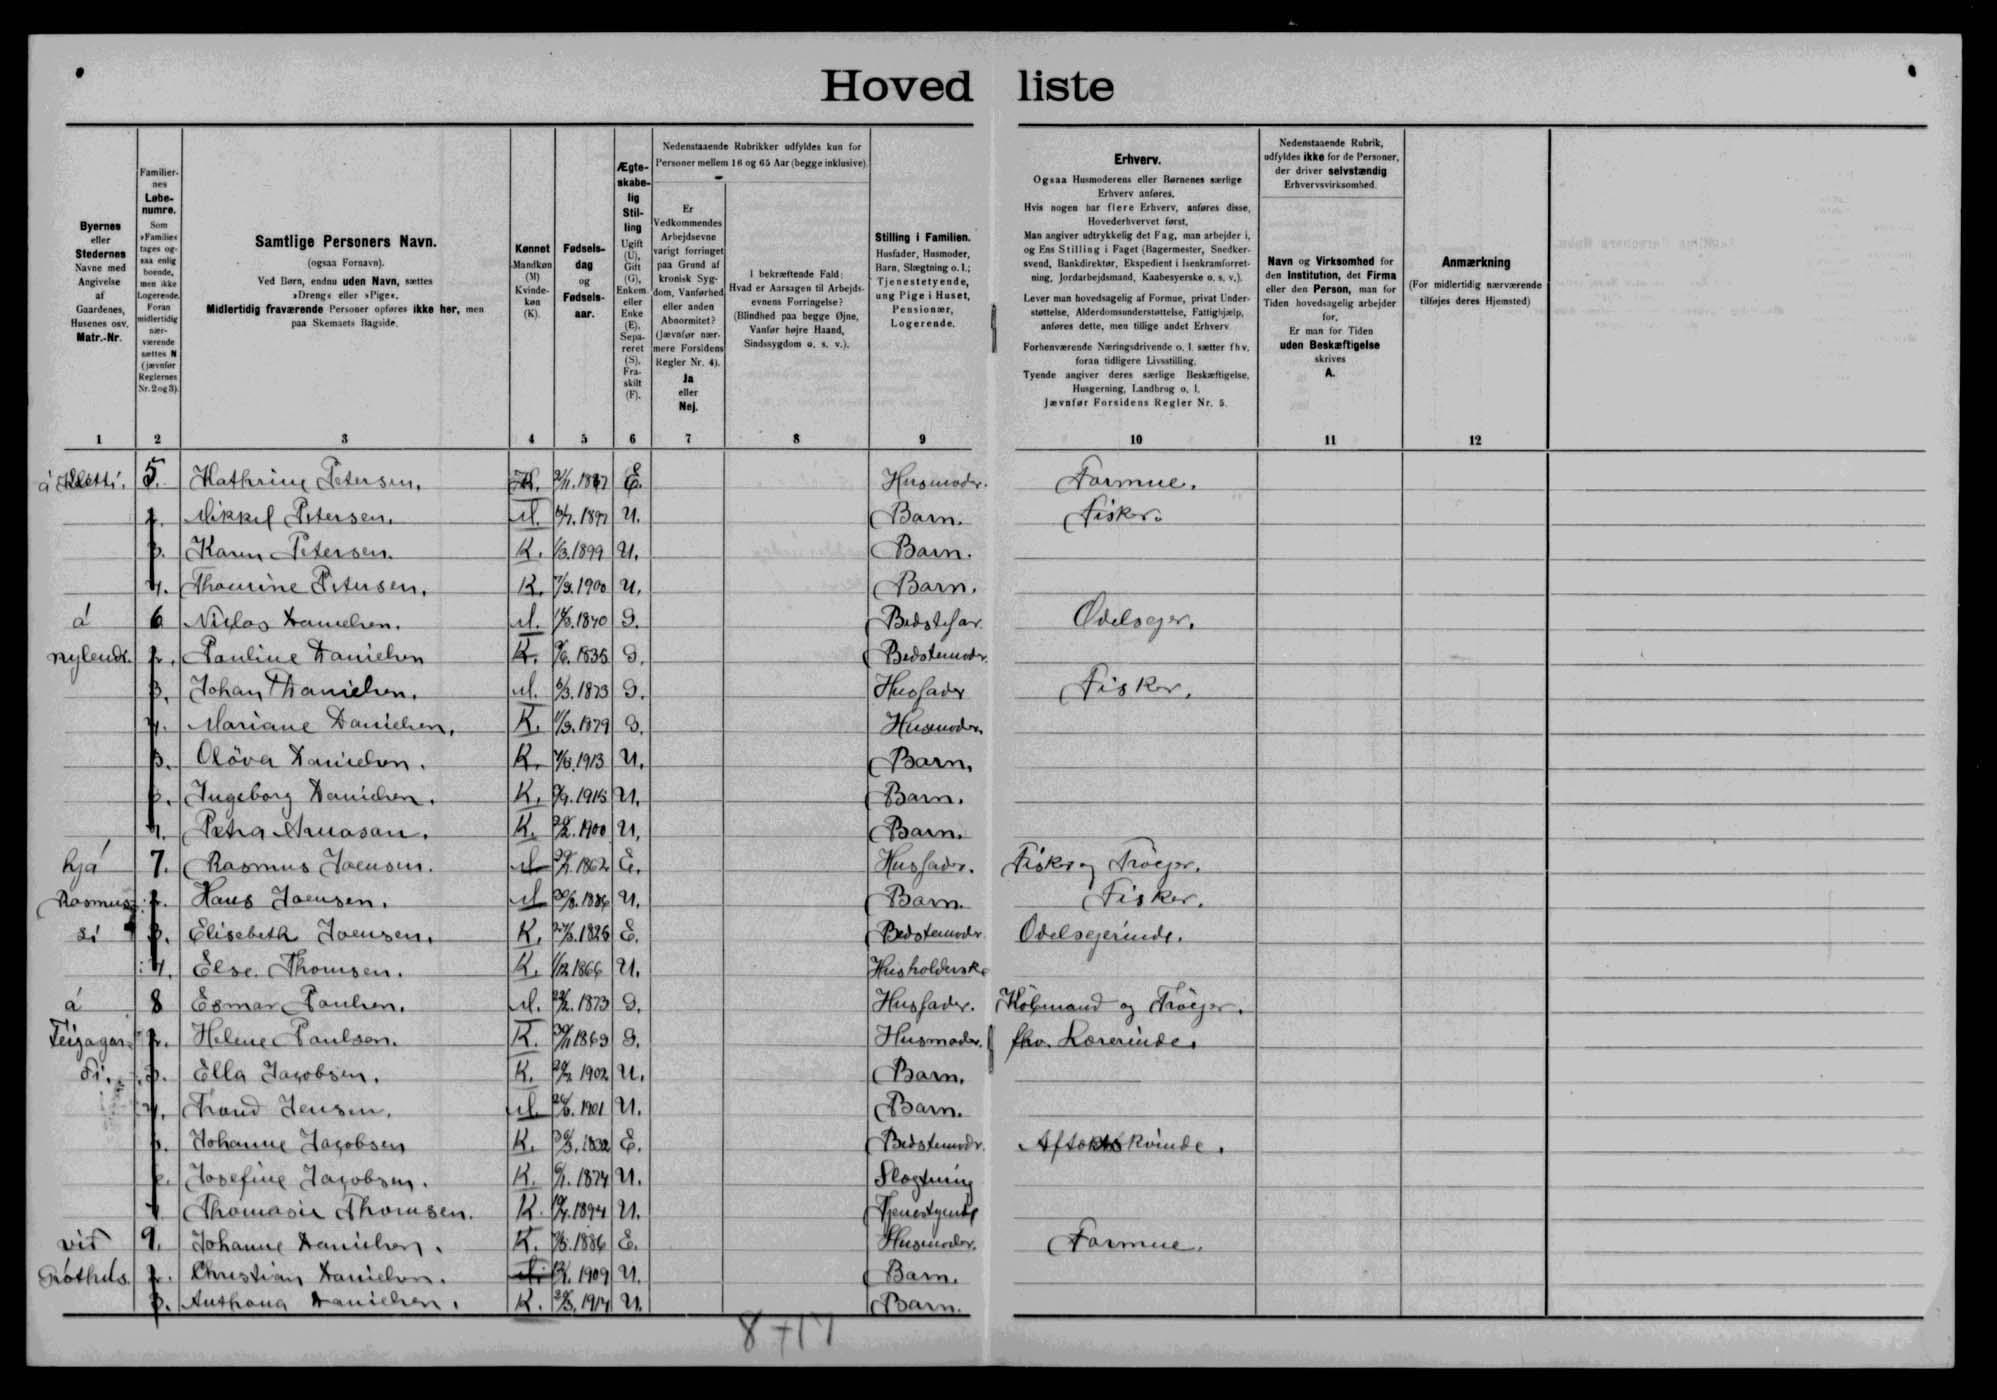 Hoved liste
Byernes eller Stedernes Navne med Angivelse af Gaardenes, Husenes osv. Matr.-Nr.
Familiernes Løbenumre. Som »Familie« tages ogsaa enlig boende, men ikke Logerende. Foran midlertidig nærværende sættes N (jævnfør Reglernes Nr. 2 og 3).
Samtlige Personers Navn. (ogsaa Fornavn). Ved Børn, endnu uden Navn, sættes »Dreng« eller »Pige«. Midlertidig fraværende Personer opføres ikke her, men paa Skemaets Bagside.
Kønnet Mandkøn (M) Kvindekøn (K).
Fødselsdag og Fødselsaar.
Ægteskabelig Stilling Ugift (U), Gift (G), Enkem. eller Enke (E), Separeret (S), Fraskilt (F).
Nedenstaaende Rubrikker udfyldes kun for Personer mellem 16 og 65 Aar (begge inklusive).
Er Vedkommendes Arbejdsevne varigt forringet paa Grund af kronisk Sygdom, Vanførhed eller anden Abnormitet? (Jævnfør nærmere Forsidens Regler Nr. 4). Ja eller Nej.
I bekræftende Fald: Hvad er Aarsagen til Arbejdsevnens Forringelse? (Blindhed paa begge Øjne, Vanfør højre Haand, Sindssygdom o. s. v.).
Stilling i Familien. Husfader, Husmoder, Barn, Slægtning o. l.; Tjenestetyende, ung Pige i Huset, Pensionær, Logerende.
Erhverv.
Ogsaa Husmoderens eller Børnenes særlige Erhverv anføres.
Hvis nogen har flere Erhverv, anføres disse, Hovederhvervet først.
Man angiver udtrykkelig det Fag, man arbejder i, og Ens Stilling i Faget (Bagermester, Snedkersvend, Bankdirektør, Ekspedient i Isenkramforretning, Jordarbejdsmand, Kaabesyerske o. s. v.).
Lever man hovedsagelig af Formue, privat Understøttelse, Alderdomsunderstøttelse, Fattighjælp, anføres dette, men tillige andet Erhverv.
Forhenværende Næringsdrivende o. l. sætter fhv. foran tidligere Livsstilling.
Tyende angiver deres særlige Beskæftigelse, Husgerning, Landbrug o. l.
Jævnfør Forsidens Regler Nr. 5.
Nedenstaaende Rubrik, udfyldes ikke for de Personer, der driver selvstændig Erhvervsvirksomhed.
Navn og Virksomhed for den Institution, det Firma eller den Person, man for Tiden hovedsagelig arbejder for.
Er man for Tiden uden Beskæftigelse skrives A.
Anmærkning
(For midlertidig nærværende tilføjes deres Hjemsted)
1 2 3 4 5 6 7 8 9 10 11 12
á Kletti. 5. Kathrine Petersen. K. E. Husmoder. Formue.
2. Mikkel Petersen. M. 1897 U. Barn. Fisker.
3. Karen Petersen. K. 1/3.1899 U. Barn.
4. Thomine Petersen. K. 1900 U. Barn.
á 6 Niclas Danielsen. M. 1840 G. Bedstefar. Odelsejer.
nylendi. 2. Pauline Danielsen K. 1835 G. Bedstemoder.
3. Johan Danielsen. M. 1873 G. Husfader Fisker.
4. Mariane Danielsen. K. 1879 G. Husmoder.
Olöva Danielsen. K. 1913 U. Barn.
Ingeborg Danielsen. K. 1915 U. Barn.
Petra Arnasan. K. 1900 U. Barn.
hjá 7. Rasmus Joensen. M 1862 E. Husfader. Fisker og Tröejer.
Rasmus 2. Hans Joensen. M 1886 U. Barn. Fisker.
si 3. Elisebeth Joensen. K. 1826 E. Bedstemoder. Odelsejerinde.
4. Else Thomsen. K. 1/12 1866 U. Husholderske
á 8 Esmar Poulsen. M. 1873 G. Husfader. Köbmand og Tröejer.
2. Helene Poulsen. K. 1869 G. Husmoder. fhv. Lærerinde.
3. Ella Jacobsen. K. 1902 U. Barn.
4. Trond Jensen. M. 1901 U. Barn.
Johanne Jacobsen K. 1832 E. Bedstemoder. Aftægtskvinde.
Josefine Jacobsen. K. 1874 U. Slægtning
Thomasia Thomsen. K. 1894 U. Tjenestyende
við 9. Johanne Danielsen. K. 1886 E. Husmoder. Formue.
2. Christian Danielsen. M. 1909 U. Barn.
3. Anthona Danielsen. K. 1914 U. Barn.
8+17